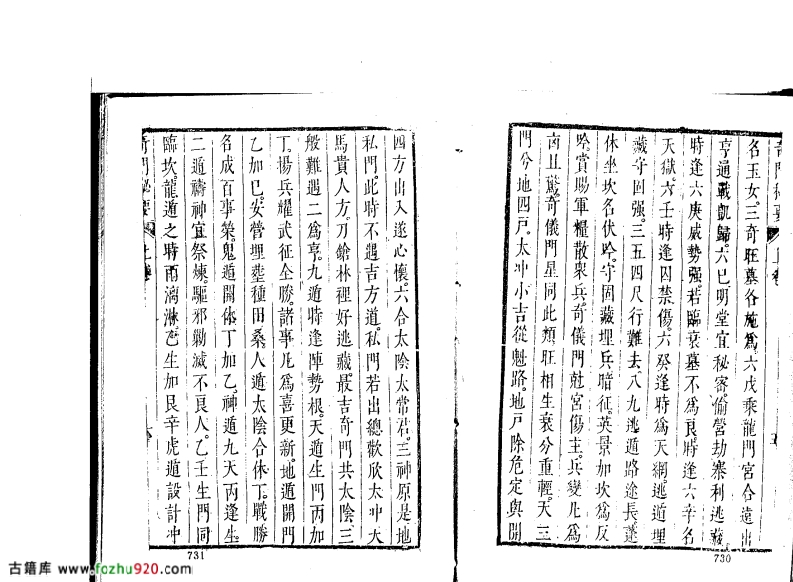 奇門秘要 上卷
名玉女三奇旺墓各施為六戊乘龍門宮合遠出
亨通戰凱歸六巳明堂宜秘密偷營劫寨利逃藏
時逢六庚威勢强若臨衰墓不為良時逢六辛名
天獄六壬時逢囚禁傷六癸逢時為天網逃遁埋
藏守固强三五四尺行難去八九逃遁路途長蓬
休坐坎名伏吟守固藏埋兵暗征英景加坎為反
吟賞賜軍糧散衆兵奇儀門尅宮傷主兵變凡為
凶且驚奇儀門星同此類旺相生衰分重輕天三
門兮地四戸太冲小吉從魁路地戸除危定與開
730
四方出入遂心懷六合太陰太常君三神原是地
私門此時不遇吉方道私門若出總歡欣太冲天
馬貴人方刀鎗林裡好逃藏最吉奇門共太陰三
般難遇二為亨九遁時逢陣勢根天遁生門丙加
丁揚兵耀武征全勝諸事凡為喜更新地遁開門
乙加巳安營埋葬種田桑人遁太陰合休丁戰勝
名成百事榮鬼遁開休丁加乙神遁九天丙逢生
二遁禱神宜祭煉驅邪勦滅不良人乙壬生門同
臨坎龍遁之時雨漓淋乙生加艮辛虎遁設計冲
奇門秘要 上卷
731
古籍库 www.fozhu920.com